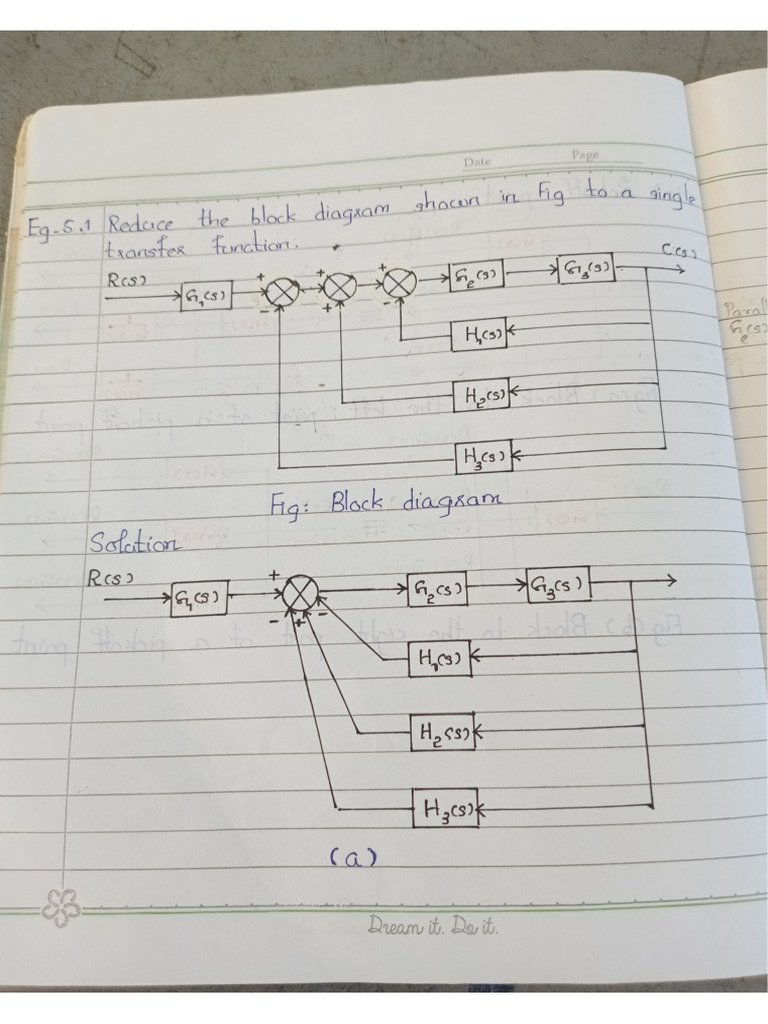 Date Page
Eg-5.1 Reduce the block diagram shown in Fig to a single
transfer function.
R(s) G₁(s) + - + + + - G₂(s) G₃(s) C(s)
H₁(s)
H₂(s)
H₃(s)
Fig: Block diagram
Solution
R(s) G₁(s) + - + - G₂(s) G₃(s)
H₁(s)
H₂(s)
H₃(s)
(a)
Dream it. Do it.